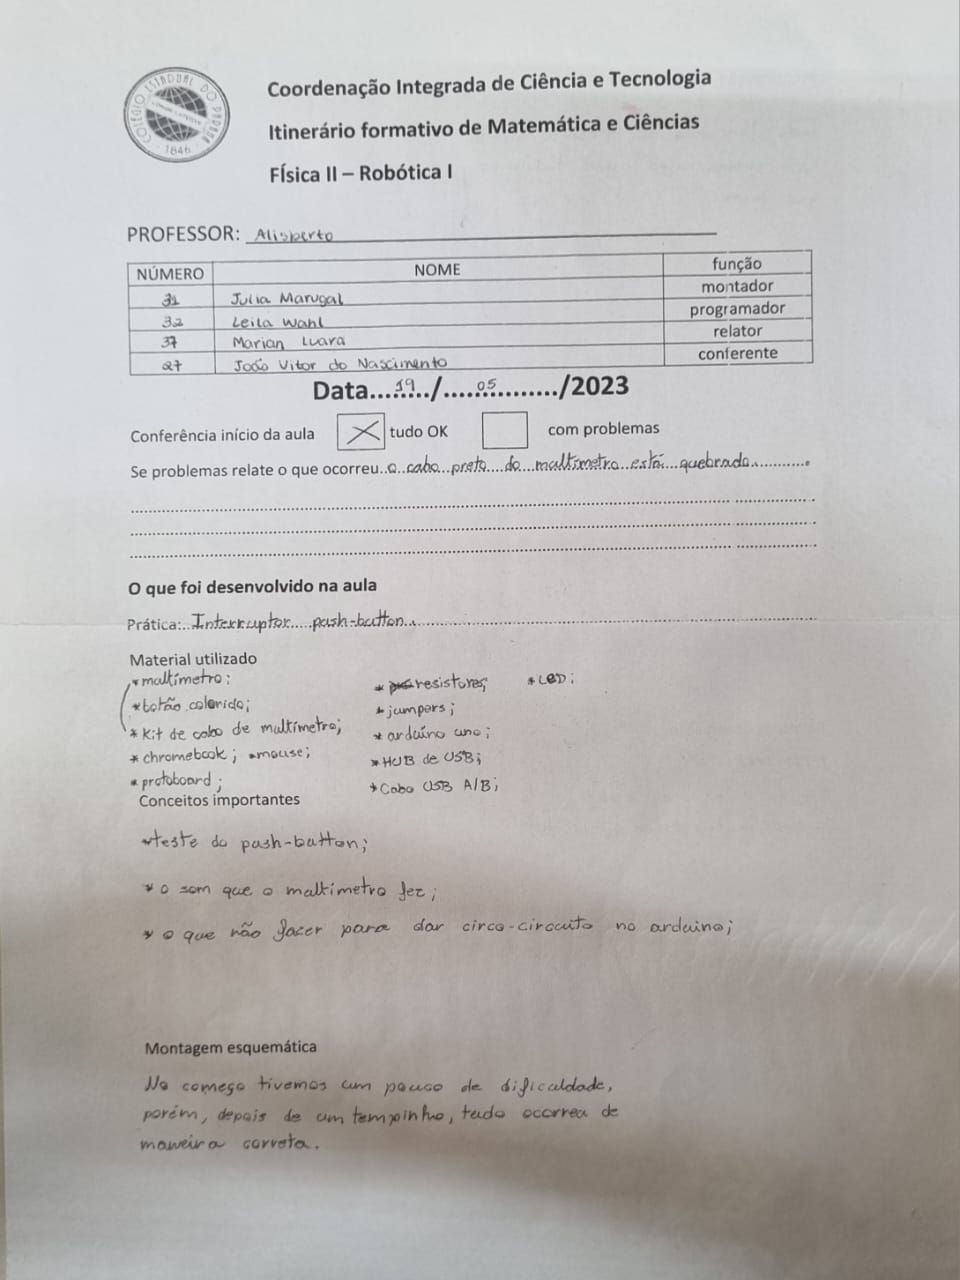 COLÉGIO ESTADUAL DO PARANÁ
1846
Coordenação Integrada de Ciência e Tecnologia
Itinerário formativo de Matemática e Ciências
FÍsica II – Robótica I
PROFESSOR: Alisberto
NÚMERO NOME função
31 Julia Marugal montador
32 Leila Wahl programador
37 Marian Luara relator
27 João Vitor do Nascimento conferente
Data....19../......05........../2023
Conferência início da aula X tudo OK com problemas
Se problemas relate o que ocorreu..o..cabo..preto....do....multímetro..está....quebrado............
O que foi desenvolvido na aula
Prática:...Interruptor.....push-button...
Material utilizado
*multímetro; *resistores; *LED;
*botão colorido; *jumpers;
*Kit de cabo de multímetro; *arduíno uno;
*chromebook; *mouse; *HUB de USB;
*protoboard; *Cabo USB A/B;
Conceitos importantes
*teste do push-button;
*o som que o multímetro fez;
*o que não fazer para dar circo-circuito no arduino;
Montagem esquemática
No começo tivemos um pouco de dificuldade,
porém, depois de um tempinho, tudo ocorreu de
maneira correta.